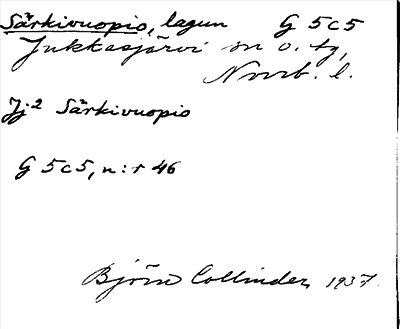 Särkivuopio, lagun G 5c5
Jukkasjärvi sn o. tg,
Norrb. l.
Jj2 Särkivuopio
G 5c5, n:r 46
Björn Collinder 1937.